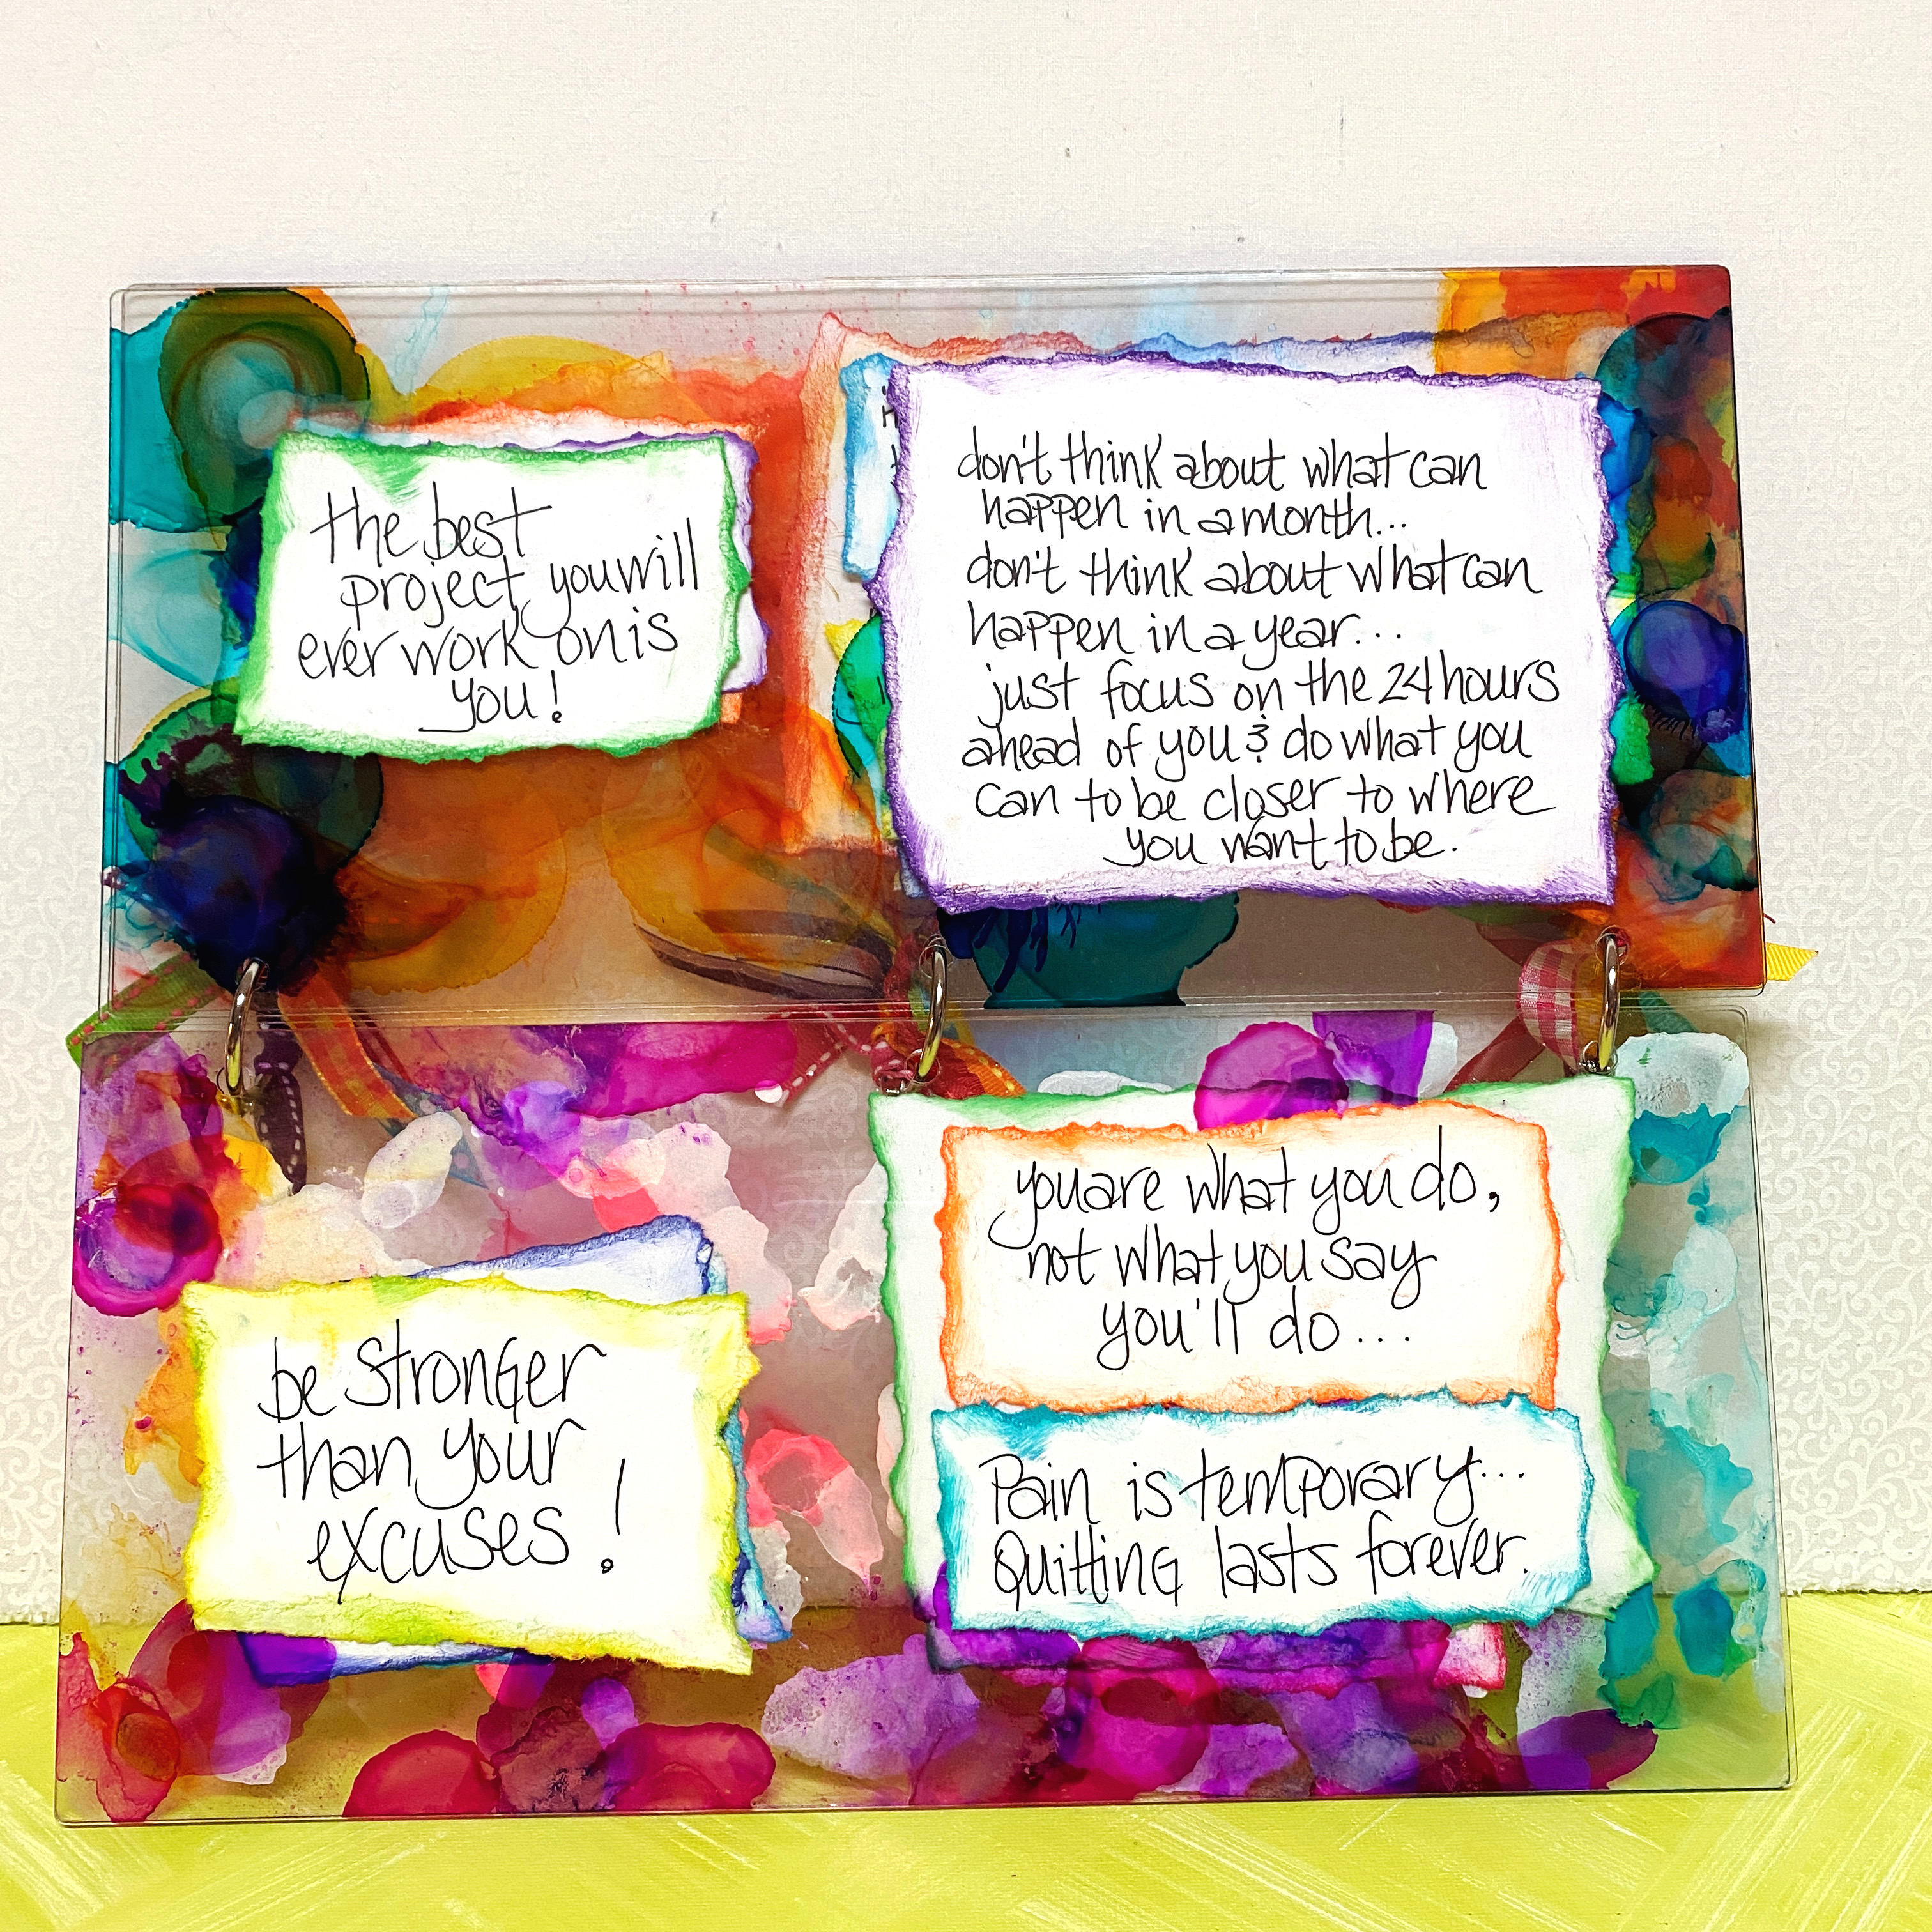 the best
project you will
ever work on is
you!
don't think about what can
happen in a month...
don't think about what can
happen in a year...
just focus on the 24 hours
ahead of you & do what you
can to be closer to where
you want to be.
be stronger
than your
excuses!
you are what you do,
not what you say
you'll do...
Pain is temporary...
Quitting lasts forever.